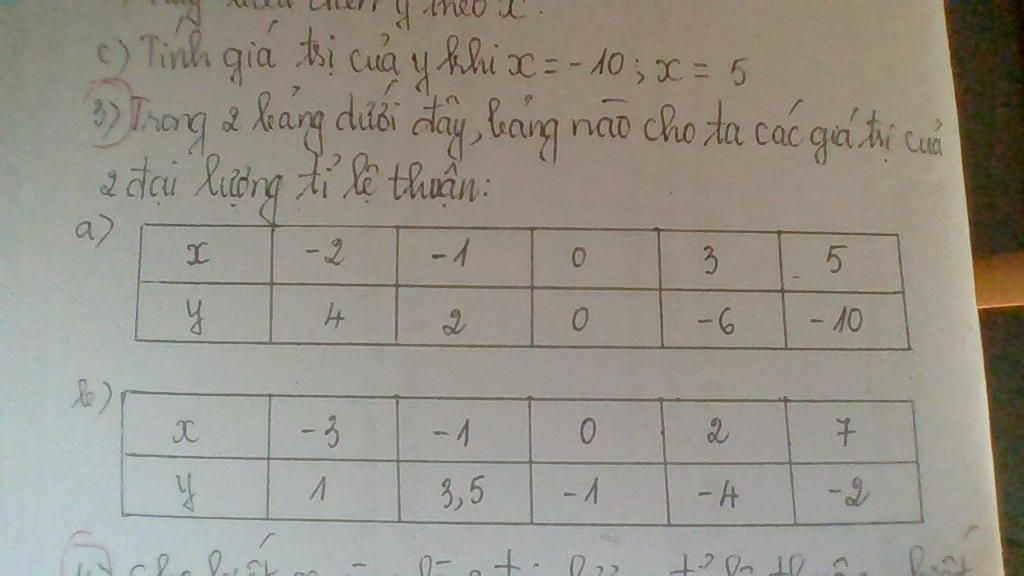 theo x.
c) Tính giá trị của y khi x = -10; x = 5
3) Trong 2 bảng dưới đây, bảng nào cho ta các giá trị của
2 đại lượng tỉ lệ thuận:
a)
x -2 -1 0 3 5
y 4 2 0 -6 -10
b)
x -3 -1 0 2 7
y 1 3,5 -1 -4 -2